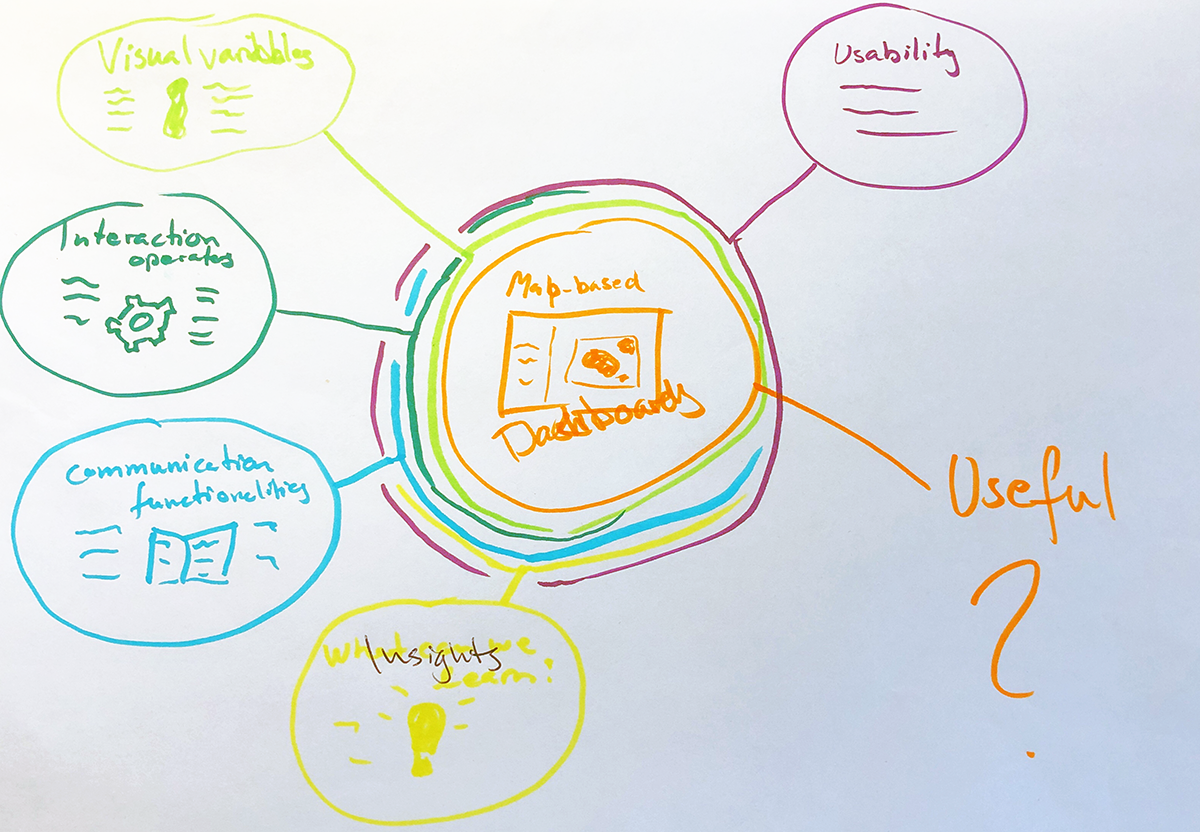 Visual variables
Usability
Interaction
operates
Map-based
Dashboards
communication
functionalities
Useful
?
What can we
Insights
learn: